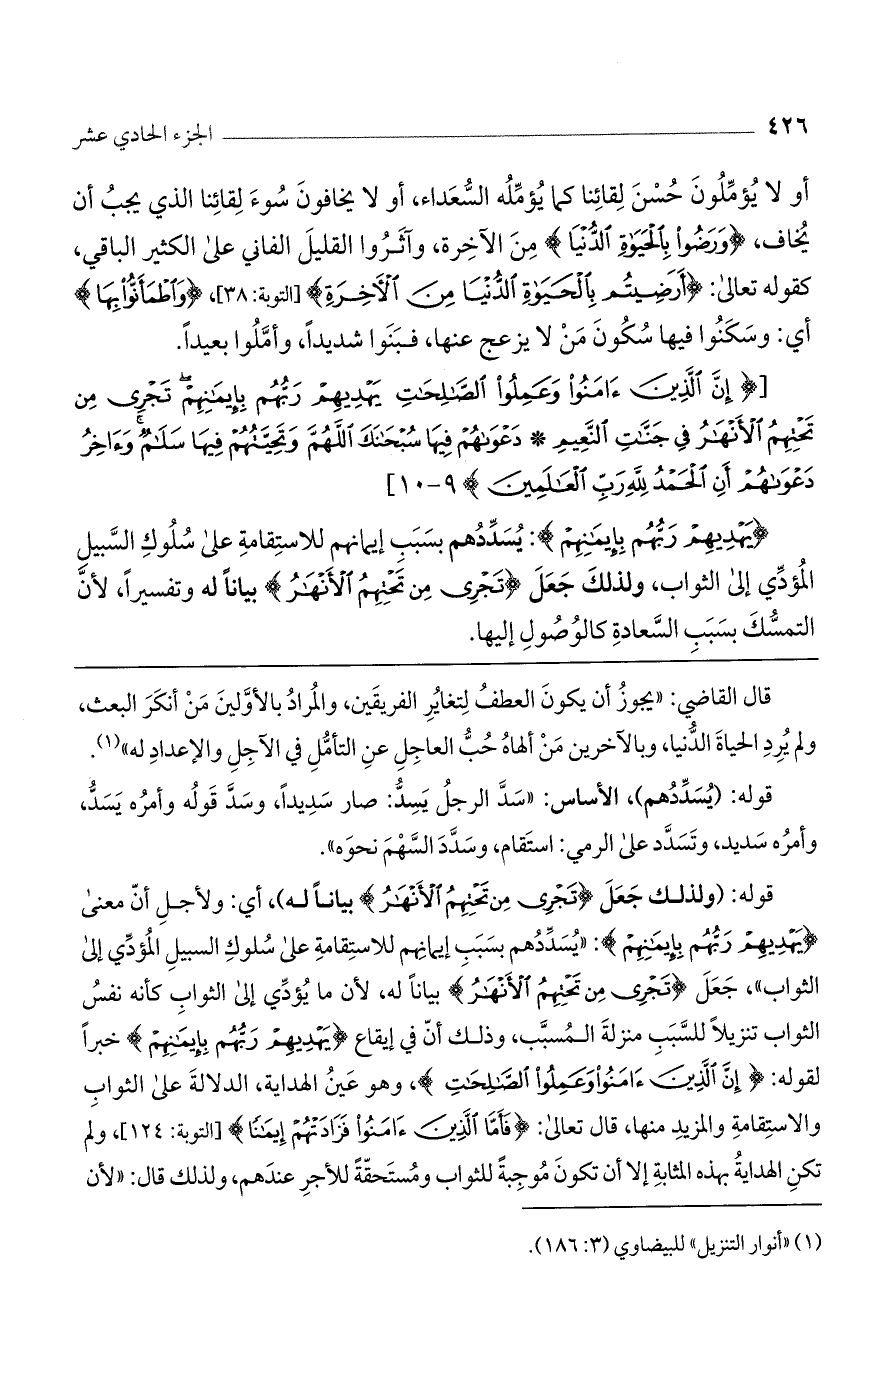 ٤٢٦ ــــــ الجزء الحادي عشر
أو لا يُؤمِّلُونَ حُسْنَ لِقائِنا كما يُؤمِّلُه السُّعَداء، أو لا يخافونَ سُوءَ لِقائِنا الذي يجبُ أن
يُخاف، ﴿وَرَضُواْ بِالْحَيَوٰةِ الدُّنْيَا﴾ مِنَ الآخِرة، وآثَـرُوا القليلَ الفاني علىٰ الكثير الباقي،
كقوله تعالىٰ: ﴿أَرَضِيتُم بِالْحَيَوٰةِ الدُّنْيَا مِنَ الْأَخِرَةِ﴾ [التوبة: ٣٨]، ﴿وَاطْمَأَنُّواْ بِهَا﴾
أي: وسَكَنُوا فيها سُكُونَ مَنْ لا يزعج عنها، فـبَنَوا شديداً، وأمَّلُوا بعيداً.
[﴿إِنَّ الَّذِينَ ءَامَنُواْ وَعَمِلُواْ الصَّالِحَاتِ يَهْدِيهِمْ رَبُّهُم بِإِيمَٰنِهِمْ ۖ تَجْرِى مِن
تَحْتِهِمُ الْأَنْهَٰرُ فِي جَنَّٰتِ النَّعِيمِ * دَعْوَىٰهُمْ فِيهَا سُبْحَٰنَكَ اللَّهُمَّ وَتَحِيَّتُهُمْ فِيهَا سَلَٰمٌ ۚ وَءَاخِرُ
دَعْوَىٰهُمْ أَنِ الْحَمْدُ لِلَّهِ رَبِّ الْعَالَمِينَ﴾ ٩-١٠]
﴿يَهْدِيهِمْ رَبُّهُم بِإِيمَٰنِهِمْ﴾: يُسَدِّدُهم بسَبَبِ إيمانهم للاستِقامةِ علىٰ سُلُوكِ السَّبيلِ
المُؤدِّي إلىٰ الثواب، ولذلكَ جَعَلَ ﴿تَجْرِى مِن تَحْتِهِمُ الْأَنْهَٰرُ﴾ بياناً له وتفسيراً، لأنَّ
التمسُّكَ بسَبَبِ السَّعادةِ كالوُصُولِ إليها.
قال القاضي: «يجوزُ أن يكونَ العطفُ لِتغايُرِ الفريقَين، والمُرادُ بالأوَّلينَ مَنْ أنكَرَ البعث،
ولم يُرِدِ الحياةَ الدُّنيا، وبالآخرين مَنْ ألهاهُ حُبُّ العاجلِ عنِ التأمُّلِ في الآجلِ والإعدادِ له»(١).
قوله: (يُسَدِّدُهم)، الأساس: «سَدَّ الرجلُ يَسِدُّ: صار سَدِيداً، وسَدَّ قَولُه وأمرُه يَسَدُّ،
وأمرُه سَديد، وتَسَدَّد علىٰ الرمي: استَقام، وسَدَّدَ السَّهْمَ نحوَه».
قوله: (ولذلـك جَعَلَ ﴿تَجْرِى مِن تَحْتِهِمُ الْأَنْهَٰرُ﴾ بيانـاً لـه)، أي: ولأجـلِ أنّ معنىٰ
﴿يَهْدِيهِمْ رَبُّهُم بِإِيمَٰنِهِمْ﴾: «يُسَدِّدُهم بسَبَبِ إيمانِهم للاستِقامةِ علىٰ سُلوكِ السبيلِ المُؤدِّي إلىٰ
الثواب»، جَعَلَ ﴿تَجْرِى مِن تَحْتِهِمُ الْأَنْهَٰرُ﴾ بياناً له، لأن ما يُؤدِّي إلىٰ الثوابِ كأنه نفسُ
الثواب تنزيلاً للسَّبَبِ منزلةَ الـمُسبَّب، وذلـك أنّ في إيقاع ﴿يَهْدِيهِمْ رَبُّهُم بِإِيمَٰنِهِمْ﴾ خبراً
لقوله: ﴿إِنَّ الَّذِينَ ءَامَنُواْ وَعَمِلُواْ الصَّالِحَاتِ﴾، وهو عَينُ الهداية، الدلالةَ علىٰ الثوابِ
والاستِقامةِ والمزيدِ منها، قال تعالىٰ: ﴿فَأَمَّا الَّذِينَ ءَامَنُواْ فَزَادَتْهُمْ إِيمَٰنًا﴾ [التوبة: ١٢٤]، ولم
تكنِ الهدايةُ بهذه المثابةِ إلا أن تكونَ مُوجِبةً للثواب ومُستَحقّةً للأجرِ عندَهم، ولذلك قال: «لأن
(١) «أنوار التنزيل» للبيضاوي (٣: ١٨٦).